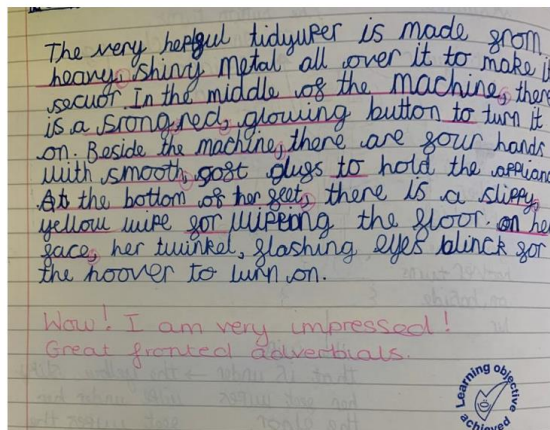 The very helpful tidyuper is made from
heavy, shiny metal all over it to make i
secuor. In the middle of the machine, there
is a srong, red, glowing button to turn it
on. Beside the machine, there are four hands
with smooth, soft glugs to hold the applian
At the bottom of her feet, there is a slippy,
yellow wipe for wipeing the floor. On he
face, her twinkel, flashing eyes blinck for
the hoover to turn on.
Wow! I am very impressed!
Great fronted adverbials.
Learning objective
achieved